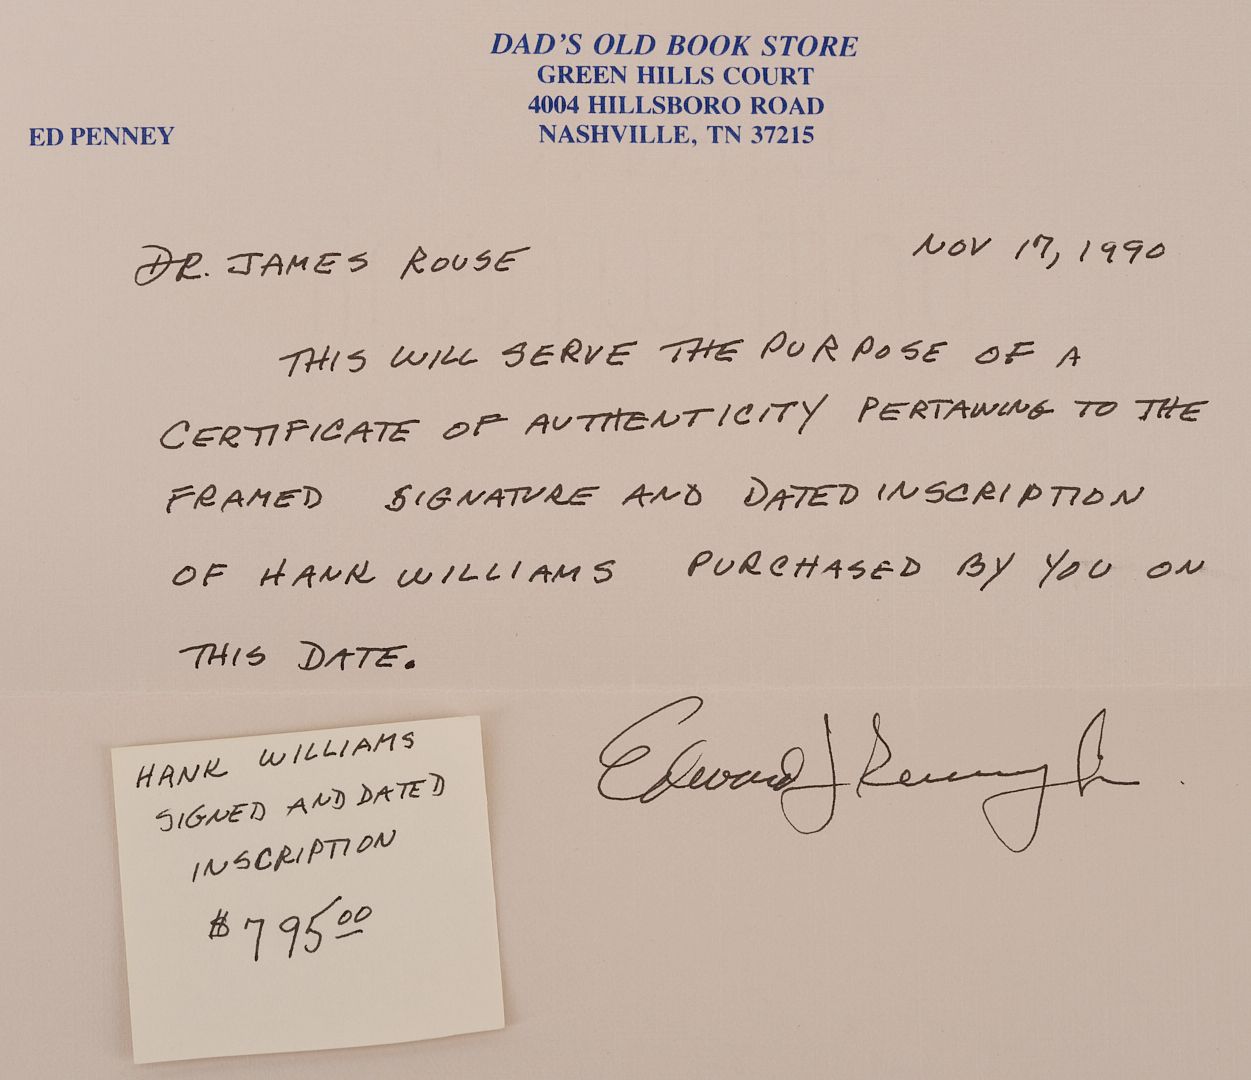 DAD'S OLD BOOK STORE
GREEN HILLS COURT
4004 HILLSBORO ROAD
NASHVILLE, TN 37215
ED PENNEY
DR. JAMES ROUSE
NOV 17, 1990
THIS WILL SERVE THE PURPOSE OF A
CERTIFICATE OF AUTHENTICITY PERTAINING TO THE
FRAMED SIGNATURE AND DATED INSCRIPTION
OF HANK WILLIAMS PURCHASED BY YOU ON
THIS DATE.
Edward J Penney Jr.
HANK WILLIAMS
SIGNED AND DATED
INSCRIPTION
$795.00